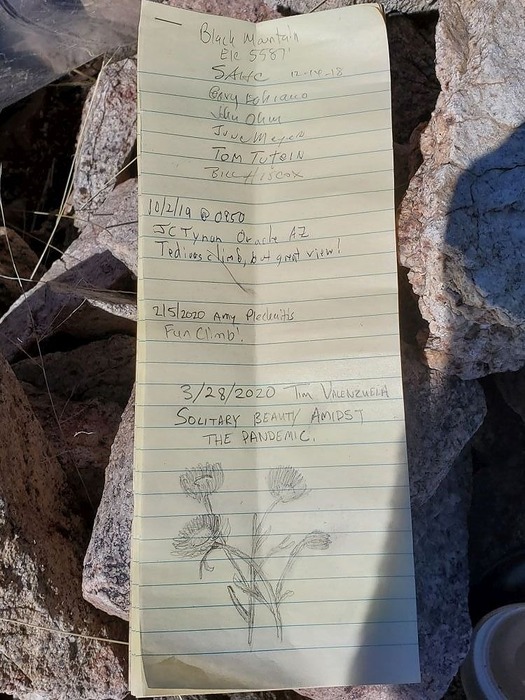 Black Mountain
Ele 5587'
SAHC 12-14-18
Gary Fabiano
John Ohm
June Meyer
Tom Tutein
Bill Hiscox
10/2/19 @ 0950
JC Tynan Oracle AZ
Tedious climb, but great view!
2/5/2020 Amy
Fun Climb!
3/28/2020 Tim Valenzuela
Solitary Beauty Amidst
the pandemic.